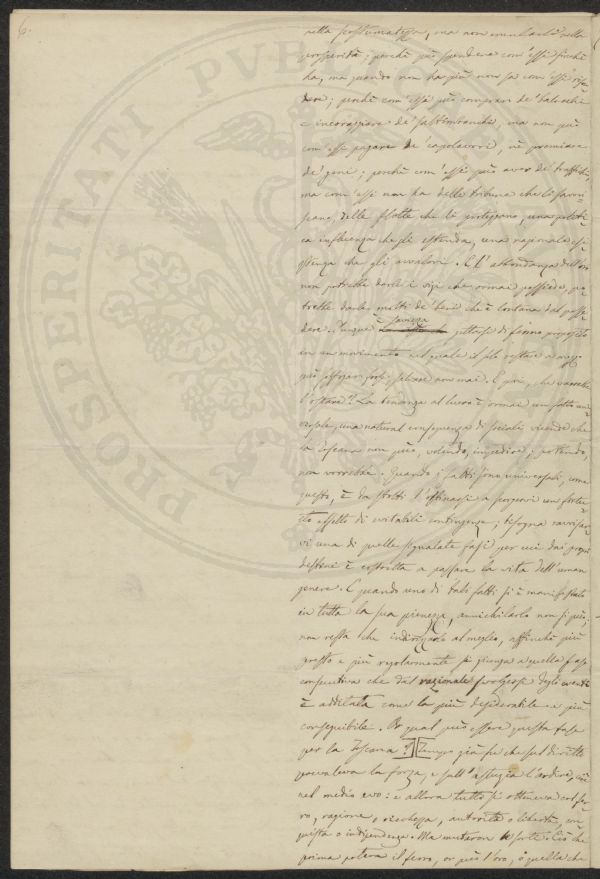 6.
nella postumatezza, ma non emularli nella
prosperità; perchè può spendere com'essi finchè
ha, ma quando non ha più non sa com'essi rifon-
dere; perchè com'essi può comprar de' balocchi
e incoraggiare de' saltimbanchi, ma non può
com'essi pagare de' capolavori, nè premiare
de' genj; perchè com'essi può aver de' traffichi,
ma com'essi non ha delle tribune che lo favori-
scano, delle flotte che lo proteggano, una politi-
ca influenza che gli estenda, una nazionale esi-
stenza che gli avvalori. E l'abbondanza dell'oro
non potrebbe darci i vizi che ormai possiede, po-
trebbe darle molti de' beni che è lontana dal posse-
dere. Dunque è saviezza gettarsi di fermo proposito
in un movimento nel quale il solo restare a mezzo
può forse, salvare non mai. E poi, che varrebbe
l'ostare? La tendenza al lucro è ormai un fatto uni-
versale, una natural conseguenza di sociali vicende che
la Toscana non può, volendo, impedire; potendo,
non vorrebbe. Quando i fatti sono universali, come
questo, è da stolti l'ostinarsi a scorgervi un fortui-
to effetto di evitabili contingenze; bisogna ravvisar-
vi una di quelle segnalate fasi per cui dai propri
destini è costretta a passare la vita dell'uman
genere. E quando uno di tali fatti si è manifestato
in tutta la sua pienezza, annichilarlo non si può;
non resta che indirizzarlo al meglio, affinchè più
presto e più regolarmente si giunga a quella fase
consecutiva che dal razionale svolgersi degli eventi
è additata come la più desiderabile e la più
conseguibile. Or qual può essere questa fase
per la Toscana?] [Tempo già fu che sul diritto
prevaleva la forza, e sull'astuzia l'ardire, così
nel medio evo: e allora tutto si otteneva col fer-
ro, ragione, ricchezza, autorità o libertà, con-
quista o indipendenza. Ma mutaron le sorti. Ciò che
prima poteva il ferro, or può l'oro, o quella che